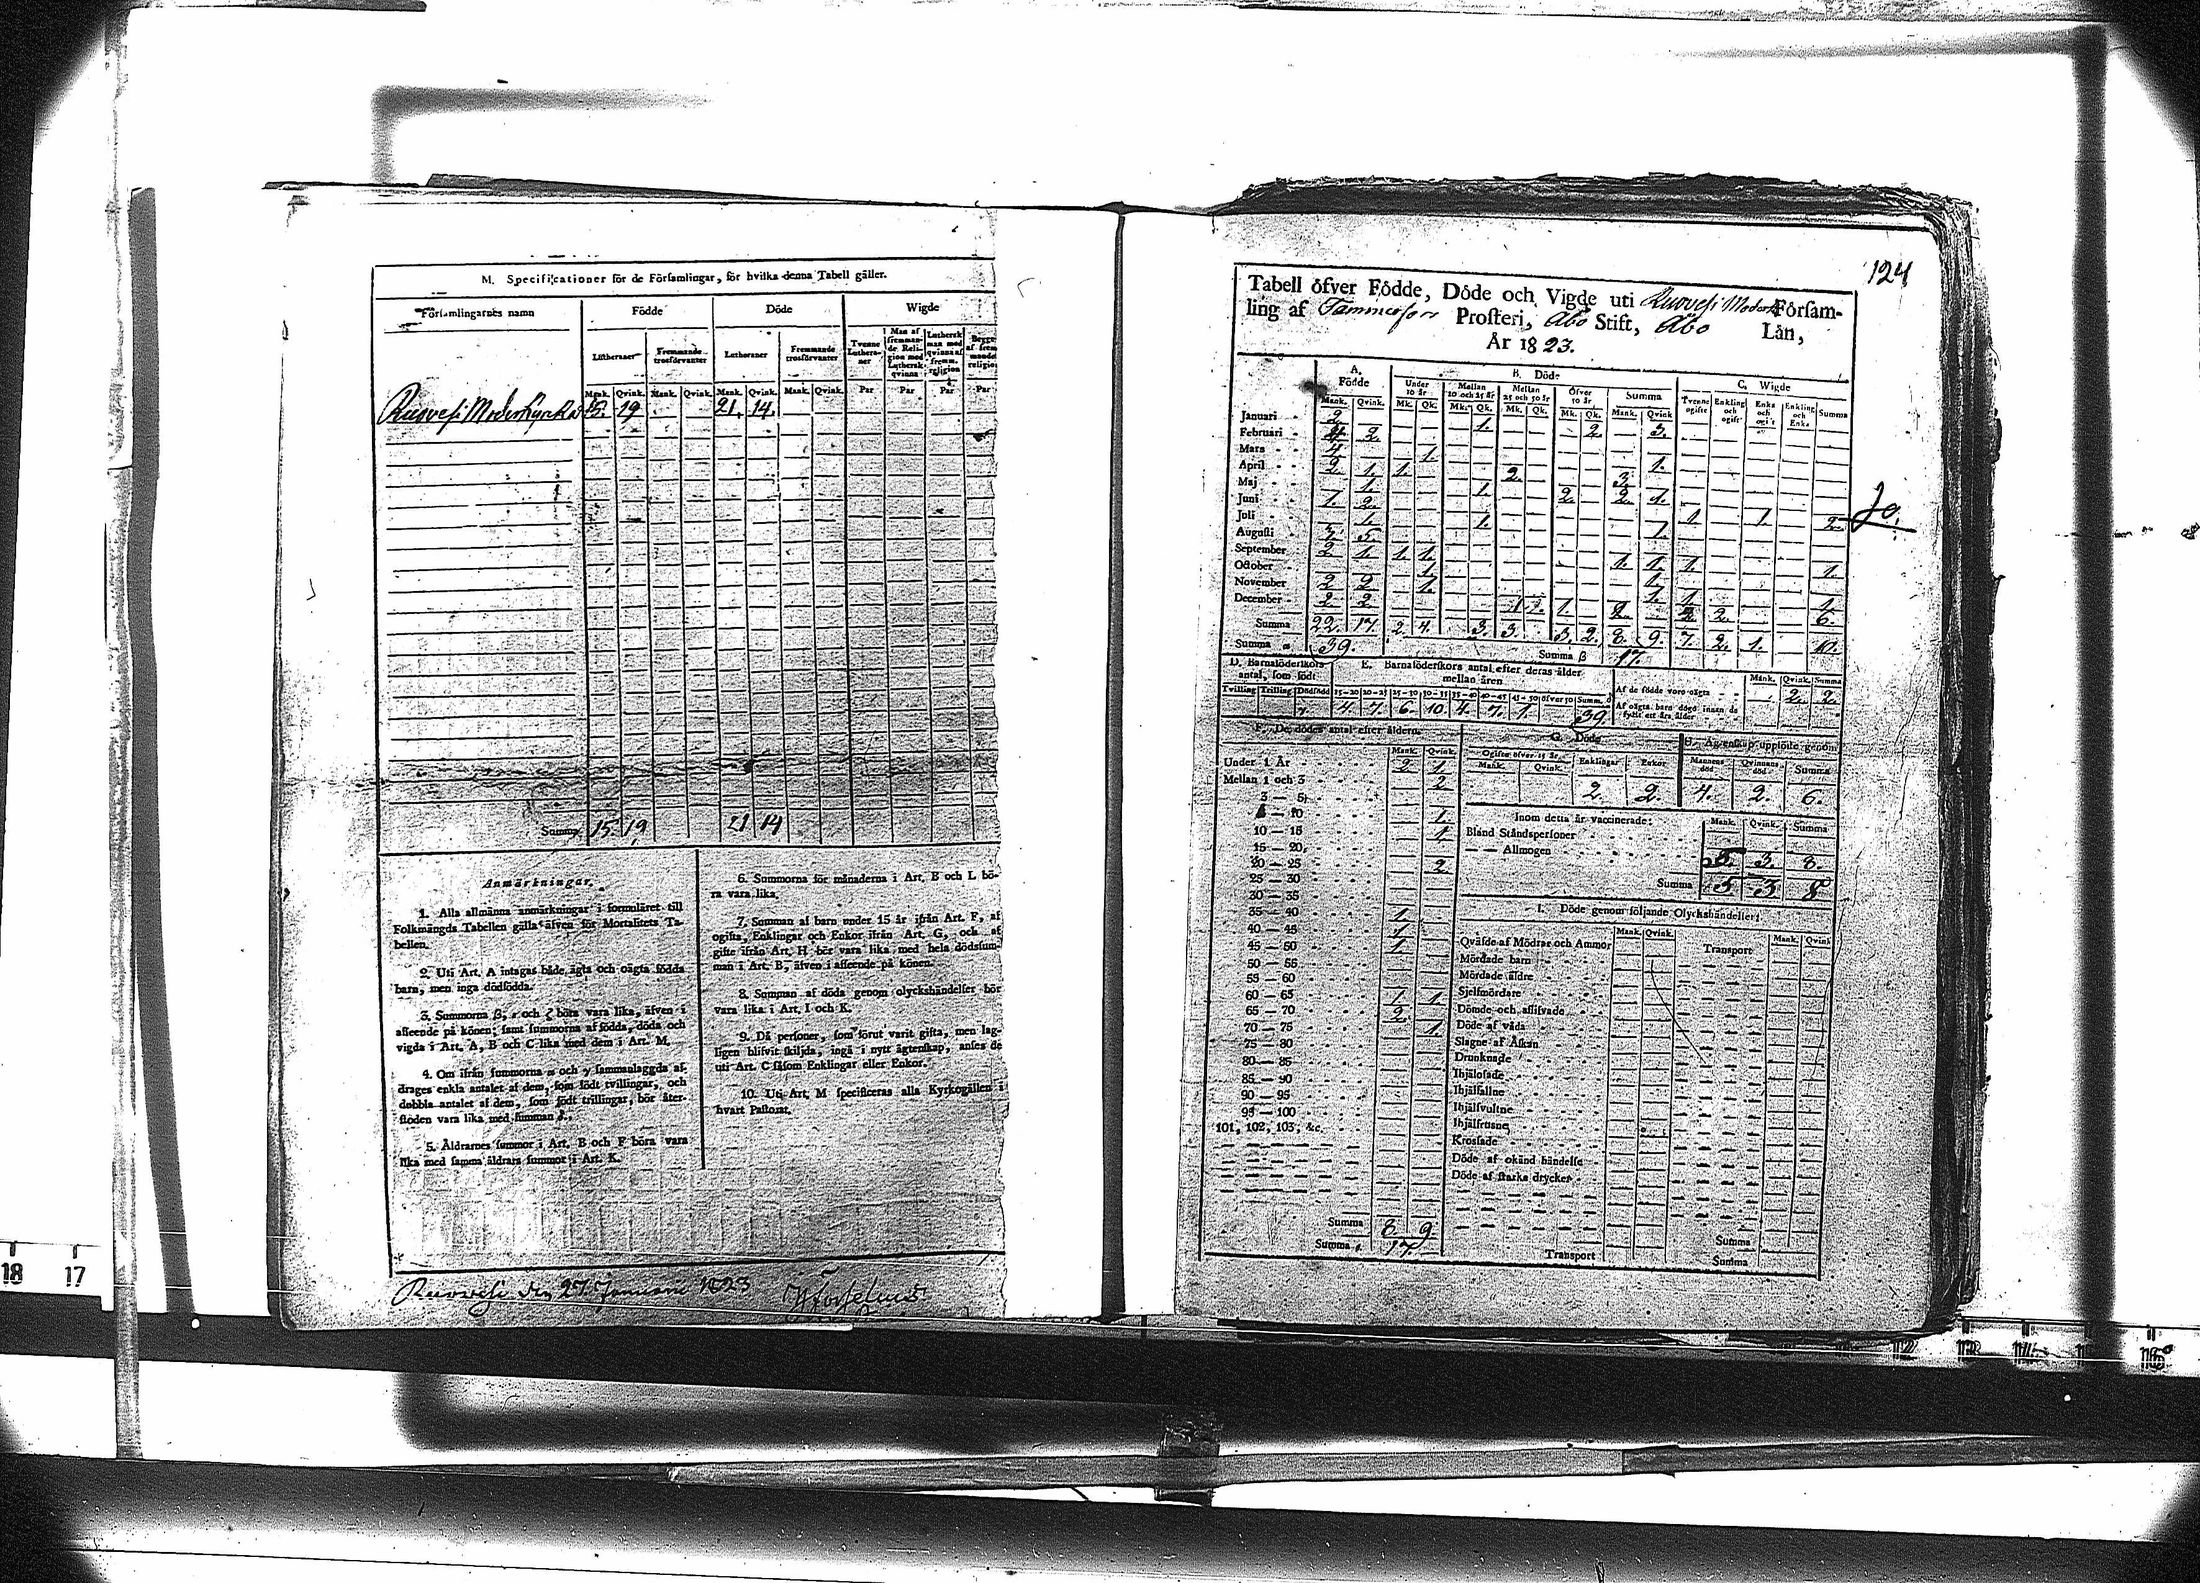 M. Specificationer för de Församlingar, för hvilka denna Tabell gäller.
Församlingarnes namn Födde Döde Wigde
Lutheraner Fremmande trosförvanter Lutheraner Fremmande trosförvanter Tvenne Lutheraner
Mank. Qvink. Mank. Qvink. Mank. Qvink. Mank. Qvink. Par Par Par Par
Ruovesi Moderkyrka 15. 19. 21. 14.
Summa 15. 19. 21 14
Anmärkningar.
1. Alla allmänna anmärkningar i formuläret till
Folkmängds Tabellen gälla äfven för Mortalitets Ta-
bellen.
2. Uti Art. A intagas både ägta och oägta födda
barn, men inga dödfödda.
3. Summorna β, ε och ζ böra vara lika, äfven i
afseende på könen; samt summorna af födda, döda och
vigda i Art. A, B och C lika med dem i Art. M.
4. Om ifrån summorna α och γ sammanlaggda af-
drages enkla antalet af dem, som födt tvillingar, och
dubbla antalet af dem, som födt trillingar, bör åter-
stoden vara lika med summan δ.
5. Åldrarnes summor i Art. B och F böra vara
lika med samma åldrars summor i Art. K.
6. Summorna för månaderna i Art. B och L bö-
ra vara lika.
7. Summan af barn under 15 år ifrån Art. F, af
ogifta, Enklingar och Enkor ifrån Art. G, och af
gifte ifrån Art. H bör vara lika med hela dödssum-
man i Art. B, äfven i afseende på könen.
8. Summan af döda genom olyckshändelser bör
vara lika i Art. I och K.
9. Då personer, som förut varit gifta, men lag-
ligen blifvit skiljda, ingå i nytt ägtenskap, anses de
uti Art. C såsom Enklingar eller Enkor.
10. Uti Art. M specificeras alla Kyrkogällen i
hvart Pastorat.
Ruovesi den 27 Januarii 1823
124
Tabell öfver Födde, Döde och Vigde uti Ruovesi Moderk Försam-
ling af Tammerfors Prosteri, Åbo Stift, Åbo Län,
År 1823.
A. Födde B. Döde C. Wigde
Under 10 år Mellan 10 och 25 år Mellan 25 och 50 år Öfver 50 år Summa Tvenne ogifte Enkling och ogift Enka och ogift Enkling och Enka Summa
Mank. Qvink. Mk. Qk. Mk. Qk. Mk. Qk. Mk. Qk. Mank. Qvink
Januari 2.
Februari 4 2. 1. 2. 3.
Mars 4 1.
April 2. 1. 1. 2. 1.
Maj 1. 3.
Juni 1. 2. 1. 2. 2. 1.
Juli 1. 1. 1. 2.
Augusti 3. 5. 1. 1.
September 2 1. 1. 1.
October 1. 1. 1. 1. 1.
November 2 2. 1. 1.
December 2. 2. 1. 1. 1. 2. 6.
Summa 22. 17. 2. 4. 3. 3. 3. 2. 8. 9. 7. 2. 1. 10.
Summa α 39. Summa β 17.
D. Barnaföderskors antal, som födt
E. Barnaföderskors antal efter deras ålder mellan åren
Tvilling Trilling Dödfödd 15—20 20—25 25—30 30—35 35—40 40—45 45—50 öfver 50 Summ. δ
4. 7. 6. 10. 4. 7. 1. 39
Mank. Qvink. Summa
Af de födde voro oägta 2. 2.
Af oägta barn dogo innan de fyllt ett års ålder
F. De dödes antal efter åldern.
Mank. Qvink.
Under 1 År 2. 1.
Mellan 1 och 3 2
3 — 5
5 — 10 1.
10 — 15 1
15 — 20
20 — 25 2.
25 — 30
30 — 35
35 — 40 1.
40 — 45 1
45 — 50 1
50 — 55
55 — 60
60 — 65 1. 1.
65 — 70 2.
70 — 75 1.
75 — 80
80 — 85
85 — 90
90 — 95
95 — 100
101, 102, 103, &c.
Summa 8. 9.
Summa ε 17.
G. Döde
Ogifte öfver 15 år Enklingar Enkor
Mank. Qvink.
2. 2.
H. Ägtenskap upplöste genom
Mannens död Qvinnans död Summa
4. 2. 6.
Inom detta år vaccinerade: Mank. Qvink. Summa
Bland Ståndspersoner
— — Allmogen 5. 3. 8.
Summa 5 3 8
I. Döde genom följande Olyckshändelser:
Mank. Qvink. Transport Mank. Qvink
Qväfde af Mödrar och Ammor
Mördade barn
Mördade äldre
Sjelfmördare
Dömde och aflifvade
Döde af våda
Slagne af Åskan
Drunknade
Ihjälosade
Ihjälfallne
Ihjälsvultne
Ihjälfrusne
Krossade
Döde af okänd händelse
Döde af starka drycker
Transport
Summa
Summa
18 17